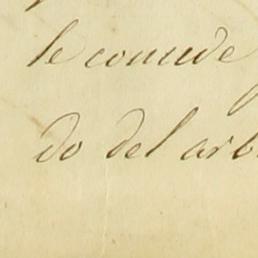 le concede
do del arb